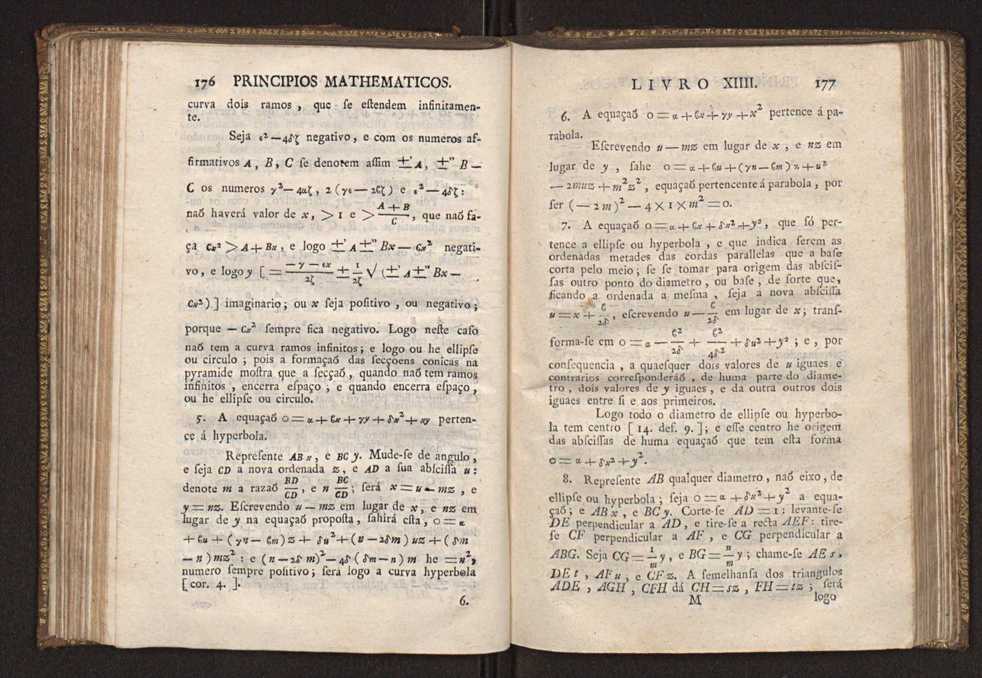 176 PRINCIPIOS MATHEMATICOS.
curva dois ramos , que ſe eſtendem infinitamen-
te.
Seja ε²—4δζ negativo , e com os numeros af-
firmativos A , B , C ſe denotem aſſim ±'A , ±" B —
C os numeros γ²—4αζ , 2 (γε — 2ϐζ) e ε²—4δζ :
naõ haverá valor de x , > 1 e > A + B / C , que naõ fa-
ça Cx² > A + Bx , e logo ±' A ±" Bx — Cx² negati-
vo , e logo y [ = —γ—εx / 2ζ ± 1/2ζ √ (±' A ±" Bx —
Cx²) ] imaginario ; ou x ſeja poſitivo , ou negativo ;
porque — Cx² ſempre fica negativo. Logo neſte caſo
naõ tem a curva ramos infinitos ; e logo ou he ellipſe
ou circulo ; pois a formaçaõ das ſecçoens conicas na
pyramide moſtra que a ſecçaõ , quando naõ tem ramos
infinitos , encerra eſpaço , e quando encerra eſpaço ,
ou he ellipſe ou circulo.
5. A equaçaõ 0 = α + ϐx + γy + δx² + xy perten-
ce á hyperbola.
Repreſente AB x , e BC y. Mude-ſe de angulo ,
e ſeja CD a nova ordenada z , e AD a ſua abſciſſa u :
denote m a razaõ BD/CD , e n BC/CD ; ſerá x = u — mz , e
y = nz. Eſcrevendo u — mz em lugar de x , e nz em
lugar de y na equaçaõ propoſta , ſahirá eſta , 0 = α
+ ϐu + (γn — ϐm) z + δu² + (n — 2δm) uz + (δm
— n) mz² : e (n — 2δm)² — 4δ (δm — n) m he = n² ,
numero ſempre poſitivo ; ſerá logo a curva hyperbola
[ cor. 4. ].
6.
LIVRO XIIII. 177
6. A equaçaõ 0 = α + ϐx + γy + x² pertence á pa-
rabola.
Eſcrevendo u — mz em lugar de x , e nz em
lugar de y , ſahe 0 = α + ϐu + (γn — ϐm) z + u²
— 2muz + m²z² , equaçaõ pertencente á parabola , por
ſer (— 2 m)² — 4 × 1 × m² = 0.
7. A equaçaõ 0 = α + ϐx + δx² + y² , que ſó per-
tence a ellipſe ou hyperbola , e que indica ſerem as
ordenadas metades das cordas parallelas que a baſe
corta pelo meio ; ſe ſe tomar para origem das abſciſ-
ſas outro ponto do diametro , ou baſe , de ſorte que ,
ficando a ordenada a meſma , ſeja a nova abſciſſa
u = x + ϐ/2δ , eſcrevendo u — ϐ/2δ em lugar de x ; transf-
forma-ſe em 0 = α — ϐ²/2δ + ϐ²/4δ² + δu² + y² ; e , por
conſequencia , a quaeſquer dois valores de u iguaes e
contrarios correſponderáõ , de huma parte do diame-
tro , dois valores de y iguaes , e da outra outros dois
iguaes entre ſi e aos primeiros.
Logo todo o diametro de ellipſe ou hyperbo-
la tem centro [ 14. def. 9. ] ; e eſſe centro he origem
das abſciſſas de huma equaçaõ que tem eſta forma
0 = α + δx² + y².
8. Repreſente AB qualquer diametro , naõ eixo , de
ellipſe ou hyperbola ; ſeja 0 = α + δx² + y² a equa-
çaõ ; e AB x , e BC y. Corte-ſe AD = 1 : levante-ſe
DE perpendicular a AD , e tire-ſe a recta AEF : tire-
ſe CF perpendicular a AF , e CG perpendicular a
ABG. Seja CG = 1/m y , e BG = n/m y ; chame-ſe AE s ,
DE t , AF u , e CF z. A ſemelhanſa dos triangulos
ADE , AGH , CFH dá CH = sz , FH = tz ; ſerá
M logo